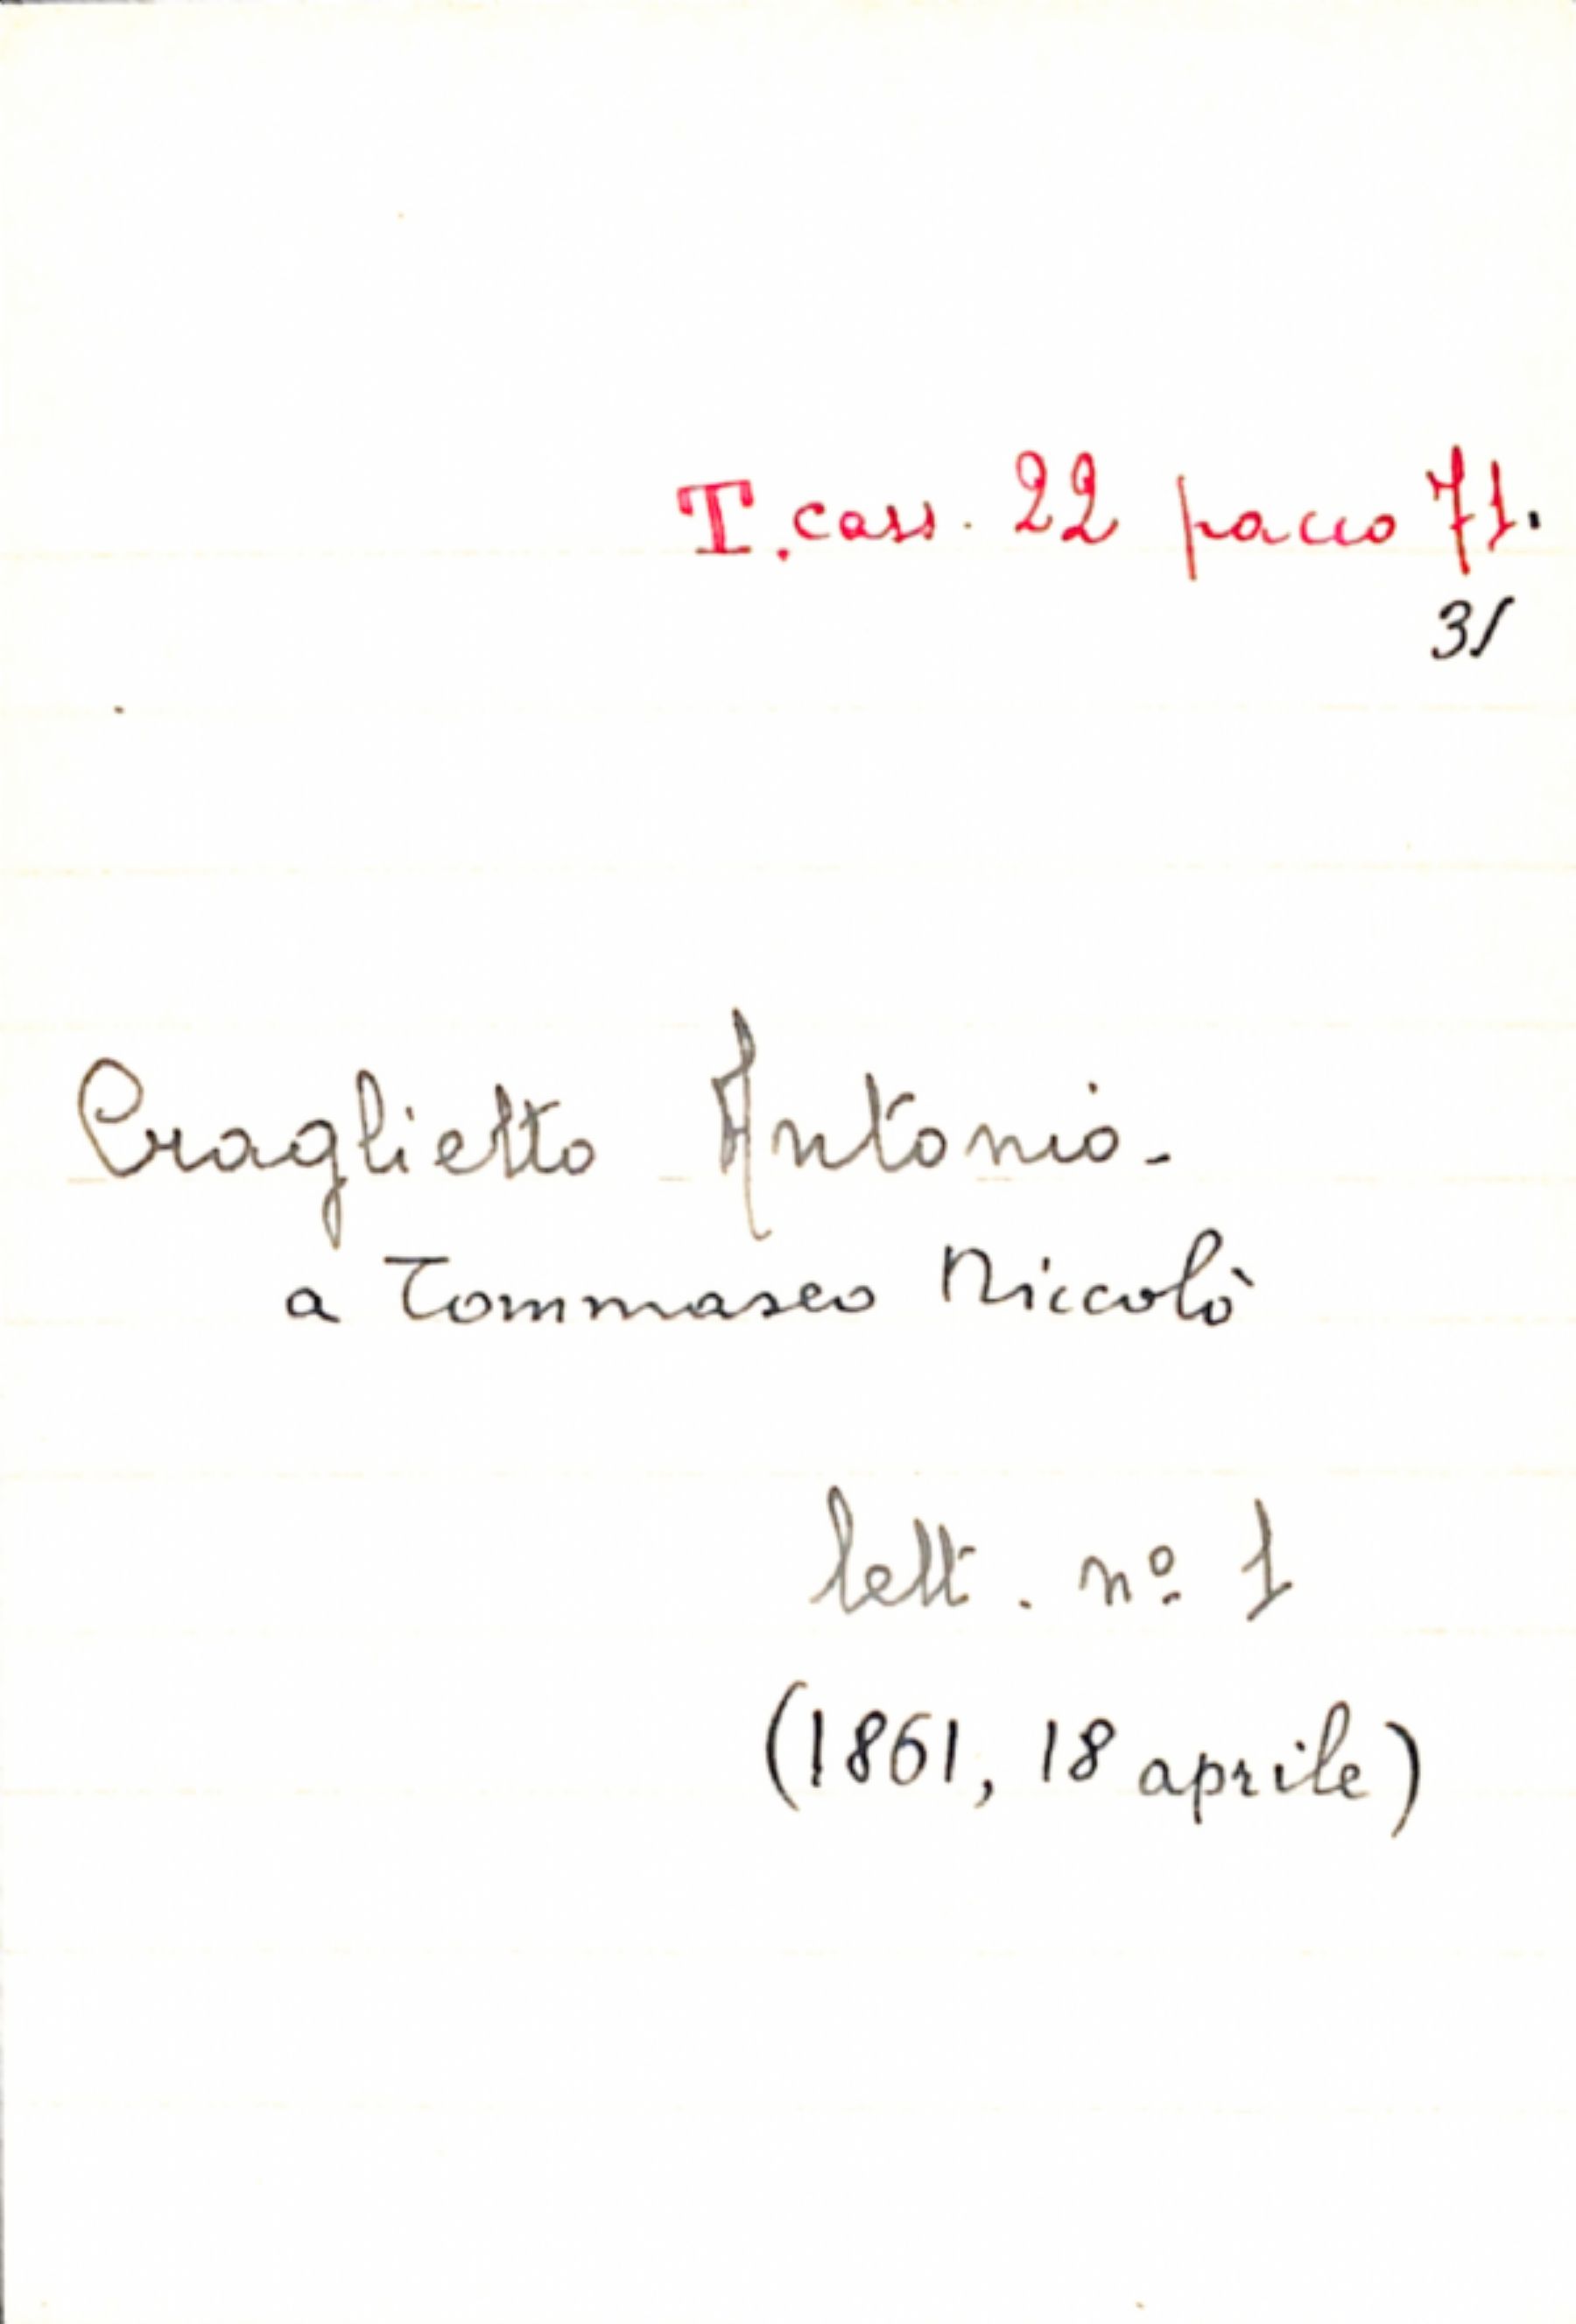 T. cass. 22 pacco 71.
31
Craglietto Antonio-
a Tommaseo Niccolò
lett. nº 1
(1861, 18 aprile)